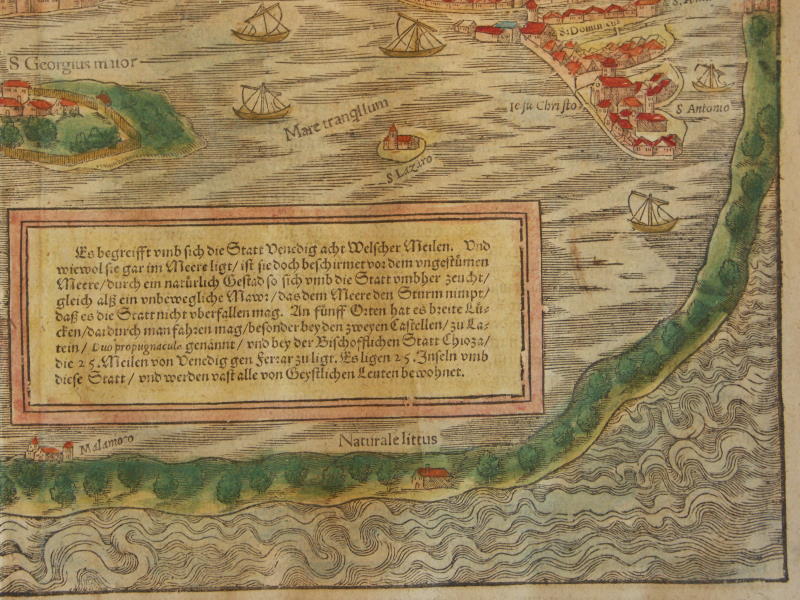 S. Domin cus
S Georgius maior
Iesu Christo
S Antonio
Mare tranqllum
S Lazaro
Es begreifft vmb sich die Statt Venedig acht Welscher Meilen. Vnd
wiewol sie gar im Meere ligt/ ist sie doch beschirmet vor dem vngestümen
Meere/ durch ein natürlich Gestad so sich vmb die Statt vmbher zeucht/
gleich alß ein vnbewegliche Mawr/ das dem Meere den Sturm nimpt/
daß es die Statt nicht vberfallen mag. An fünff Orten hat es breite Lü-
cken/ dardurch man fahren mag/ besonder bey den zweyen Castellen/ zu La-
tein/ Duo propugnacula genannt/ vnd bey der Bischofflichen Statt Chioza/
die 25. Meilen von Venedig gen Ferrar zu ligt. Es ligen 25. Inseln vmb
diese Statt/ vnd werden vast alle von Geystlichen Leuten bewohnet.
Malamoco
Naturale littus